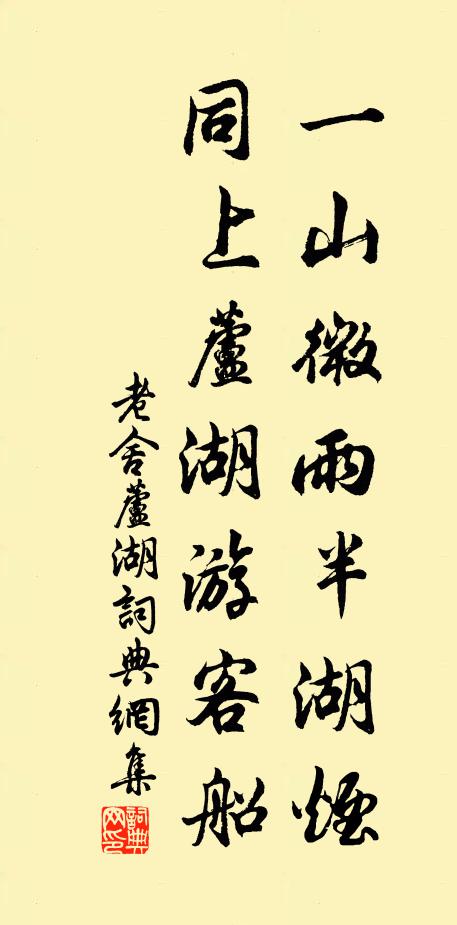 一山微雨半湖煙
同上蘆湖游客船
老舍蘆湖詞典網集
詞典網印